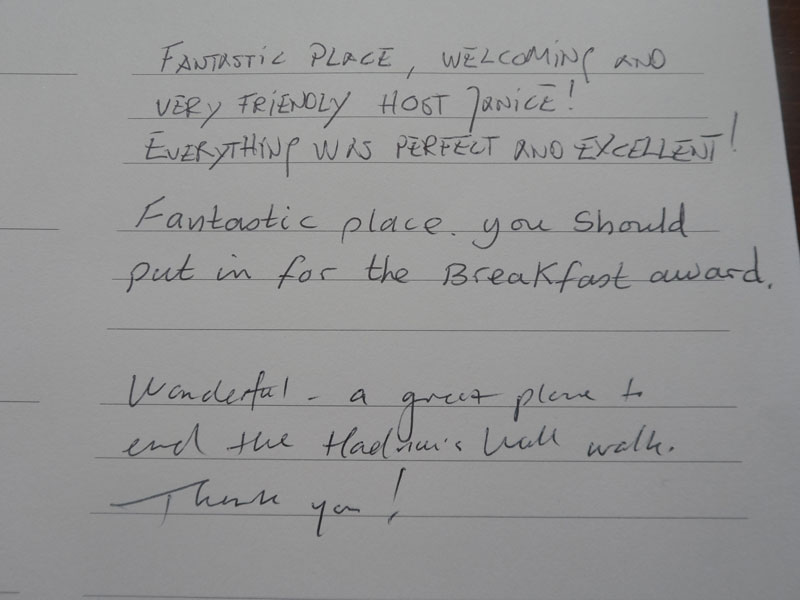 FANTASTIC PLACE, WELCOMING AND
VERY FRIENDLY HOST JANICE!
EVERYTHING WAS PERFECT AND EXCELLENT!
Fantastic place. you Should
put in for the BreaKfast award.
Wonderful - a great place to
end the Hadrian's Wall walk.
Thank you!